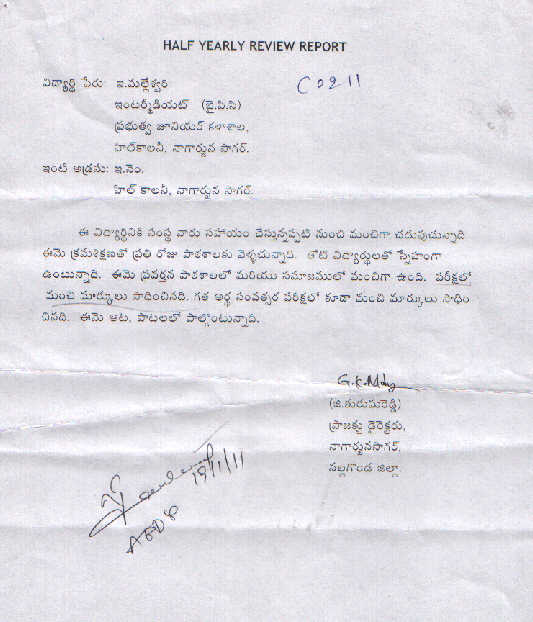 HALF YEARLY REVIEW REPORT
C0211
విద్యార్థి పేరు: ఇ.మల్లేశ్వరి
ఇంటర్మీడియట్ (బై.పి.సి)
ప్రభుత్వ జూనియర్ కళాశాల,
హిల్‌కాలనీ, నాగార్జున సాగర్.
ఇంటి అడ్రసు: ఇ.నెం.
హిల్ కాలనీ, నాగార్జున సాగర్.
ఈ విద్యార్థినికి సంస్థ వారు సహాయం చేస్తున్నప్పటి నుంచి మంచిగా చదువుచున్నాది
ఈమె క్రమశిక్షణతో ప్రతి రోజు పాఠశాలకు వెళ్ళుచున్నాది. తోటి విద్యార్థులతో స్నేహంగా
ఉంటున్నాది. ఈమె ప్రవర్తన పాఠశాలలో మరియు సమాజములో మంచిగా ఉంది. పరీక్షల్లో
మంచి మార్కులు సాధించినది. గత అర్ధ సంవత్సర పరీక్షలో కూడా మంచి మార్కులు సాధిం
చినది. ఈమె ఆట, పాటలలో పాల్గొంటున్నాది.
(జి.గురువారెడ్డి)
ప్రాజెక్టు డైరెక్టరు,
నాగార్జునసాగర్,
నల్లగొండ జిల్లా.
19/1/11